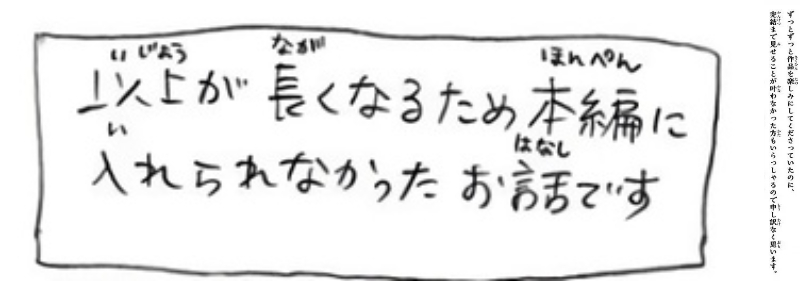 ずっとずっと作品を楽しみにしてくださっていたのに、
完結まで見せることが叶わなかった方もいらっしゃるので申し訳なく思います。
以上が長くなるため本編に
入れられなかったお話です